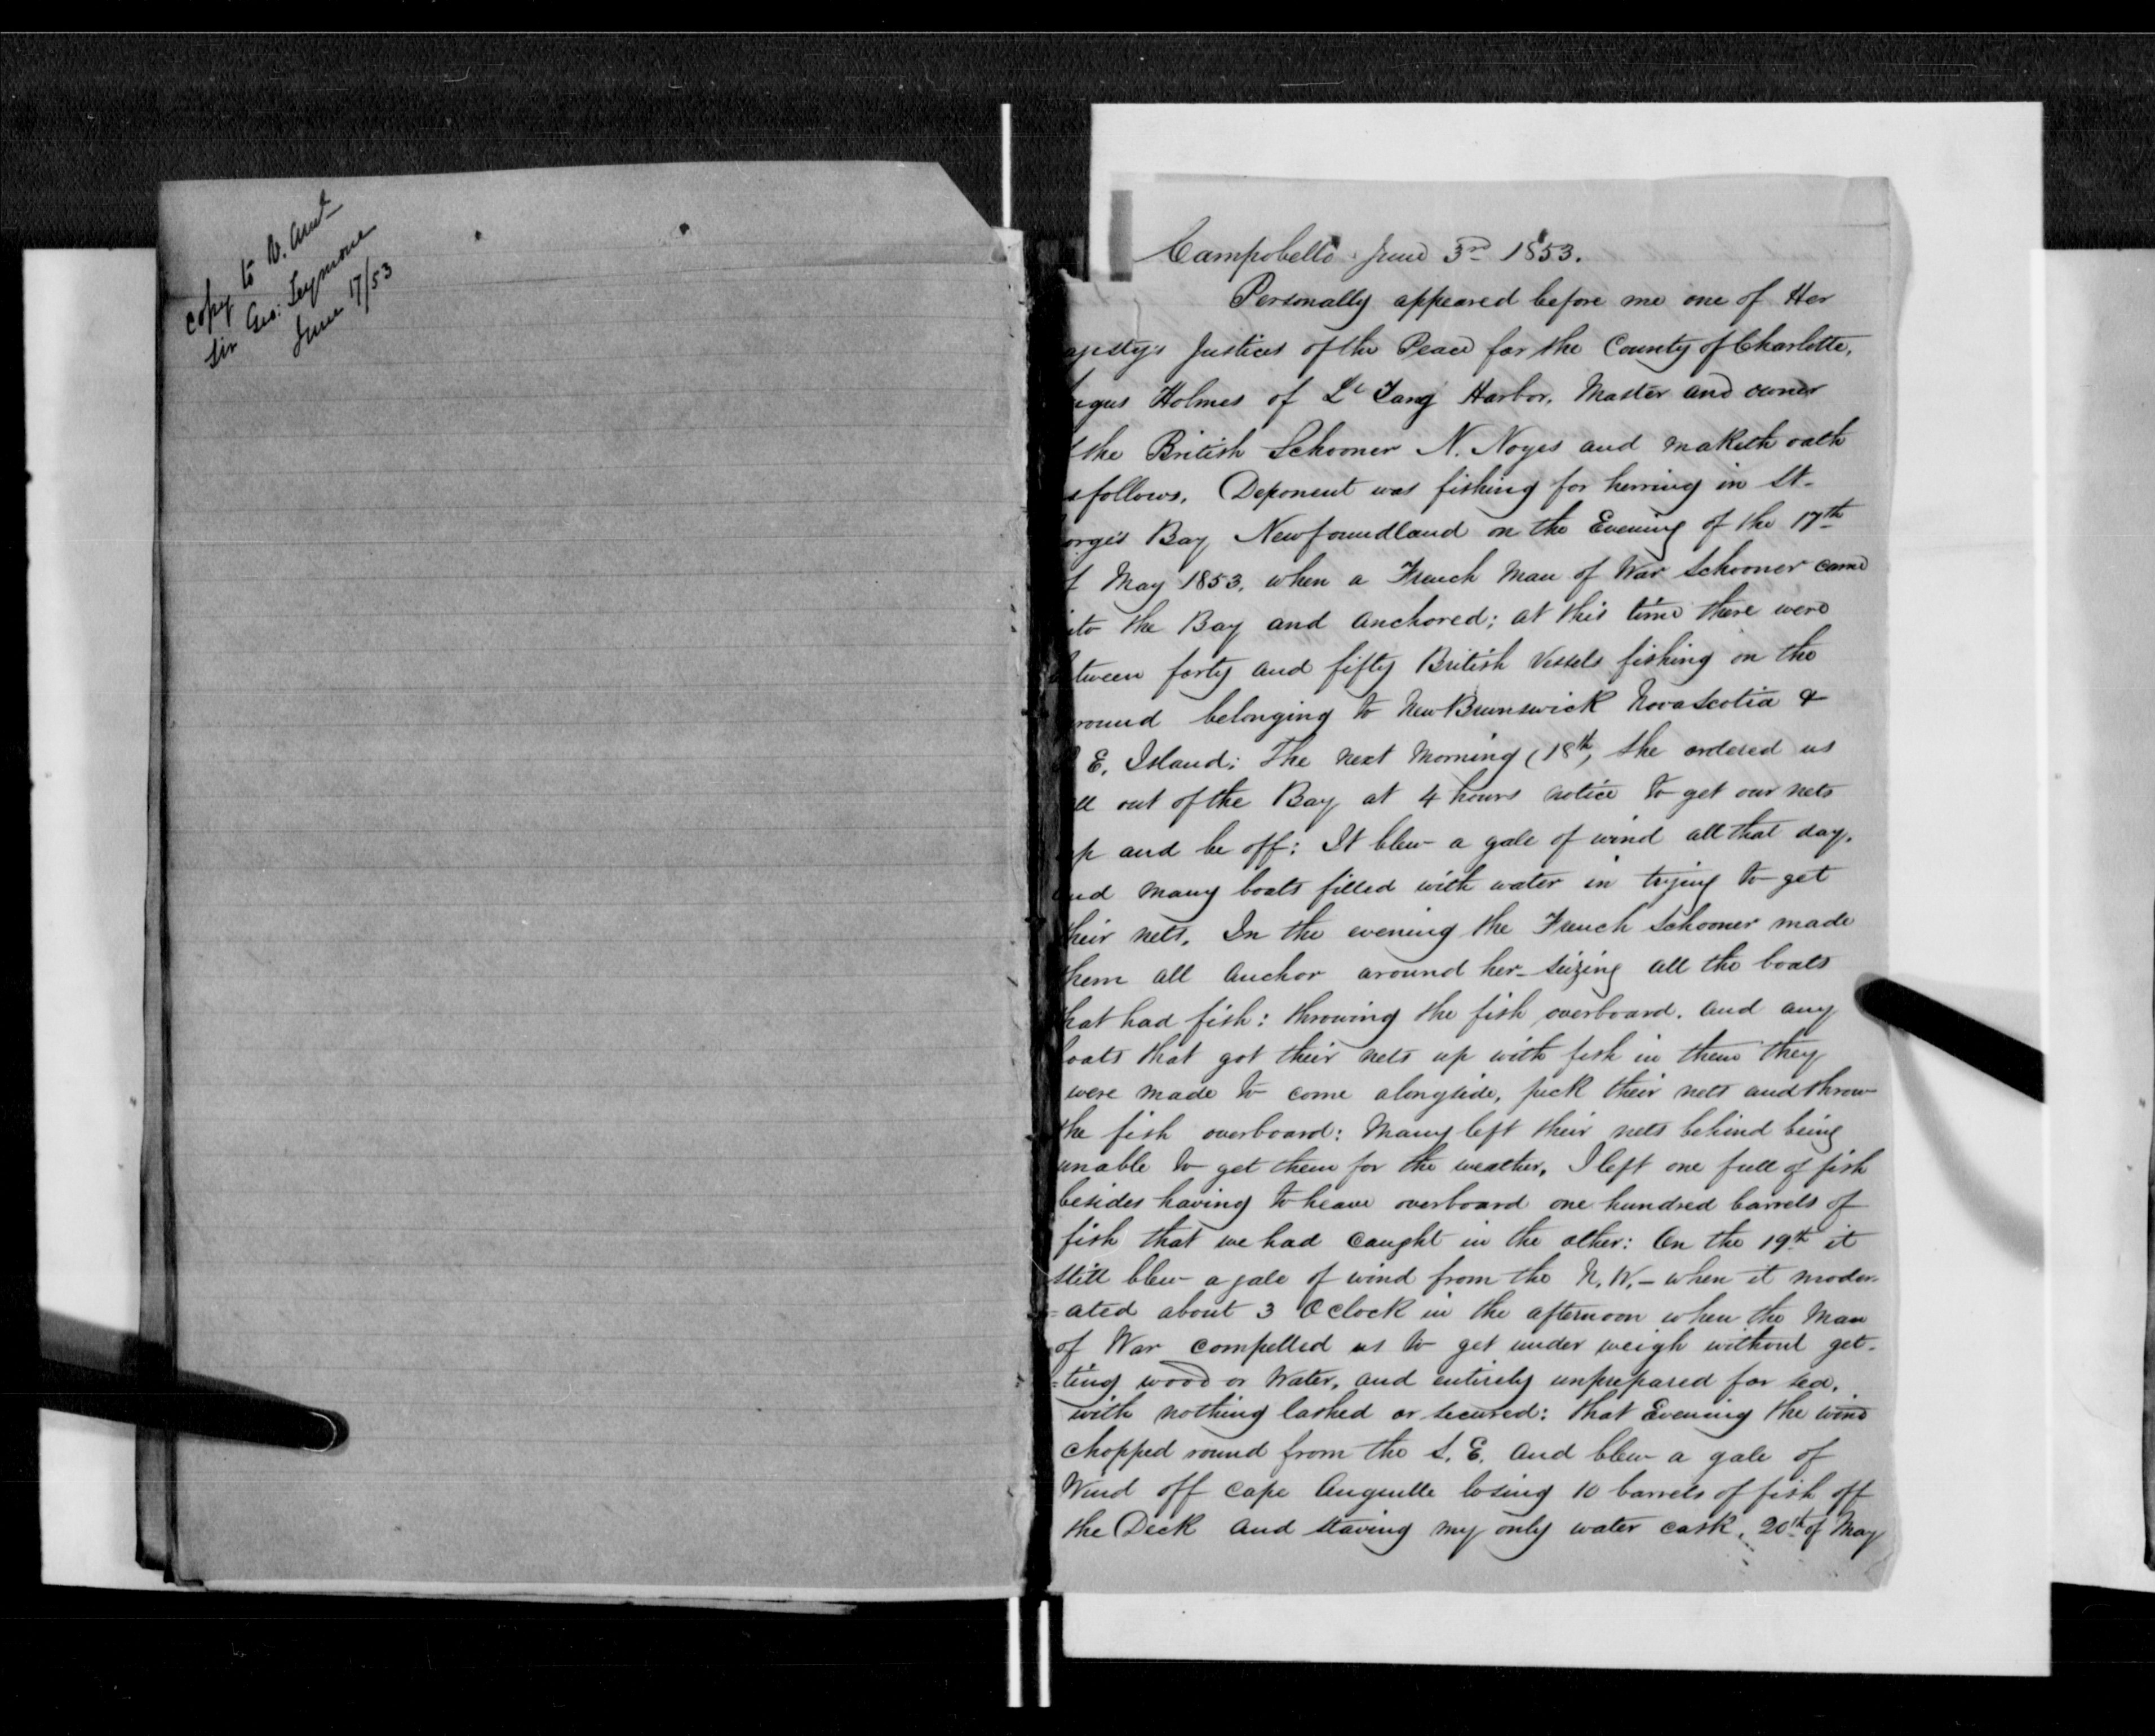 copy to V. Aml
Sir Geo: Seymour
June 17/53
Campobello June 3rd 1853.
Personally appeared before me one of Her
ajesty's Justices of the Peace for the County of Charlotte,
gus Holmes of Le Tang Harbor, Master and owner
the British Schooner N. Noyes and maketh oath
s follows. Deponent was fishing for herring in St-
orge's Bay Newfoundland on the Evening of the 17th
f May 1853, when a French Man of War Schooner came
ito the Bay and anchored; at this time there were
tween forty and fifty British Vessels fishing on the
round belonging to New Brunswick Nova Scotia &
E. Island: The next Morning (18th, she ordered us
ll out of the Bay at 4 hours notice to get our nets
p and be off: It blew a gale of wind all that day,
nd many boats filled with water in trying to get
heir nets. In the evening the French Schooner made
hem all anchor around her - seizing all the boats
hat had fish: throwing the fish overboard. and any
oats that got their nets up with fish in them they
were made to come alongside, pick their nets and throw
the fish overboard: Many left their nets behind being
unable to get them for the weather, I left one full of fish
besides having to heave overboard one hundred barrels of
fish that we had caught in the other: On the 19th it
still blew a gale of wind from the N.W. - when it moder-
=ated about 3 O clock in the afternoon when the Man
of War compelled us to get under weigh without get-
=ting wood or Water, and entirely unprepared for sea,
with nothing lashed or secured: that Evening the wind
chopped round from the S. E. and blew a gale of
Wind off Cape Anguille losing 10 barrels of fish off
the Deck and staving my only water cask, 20th of May